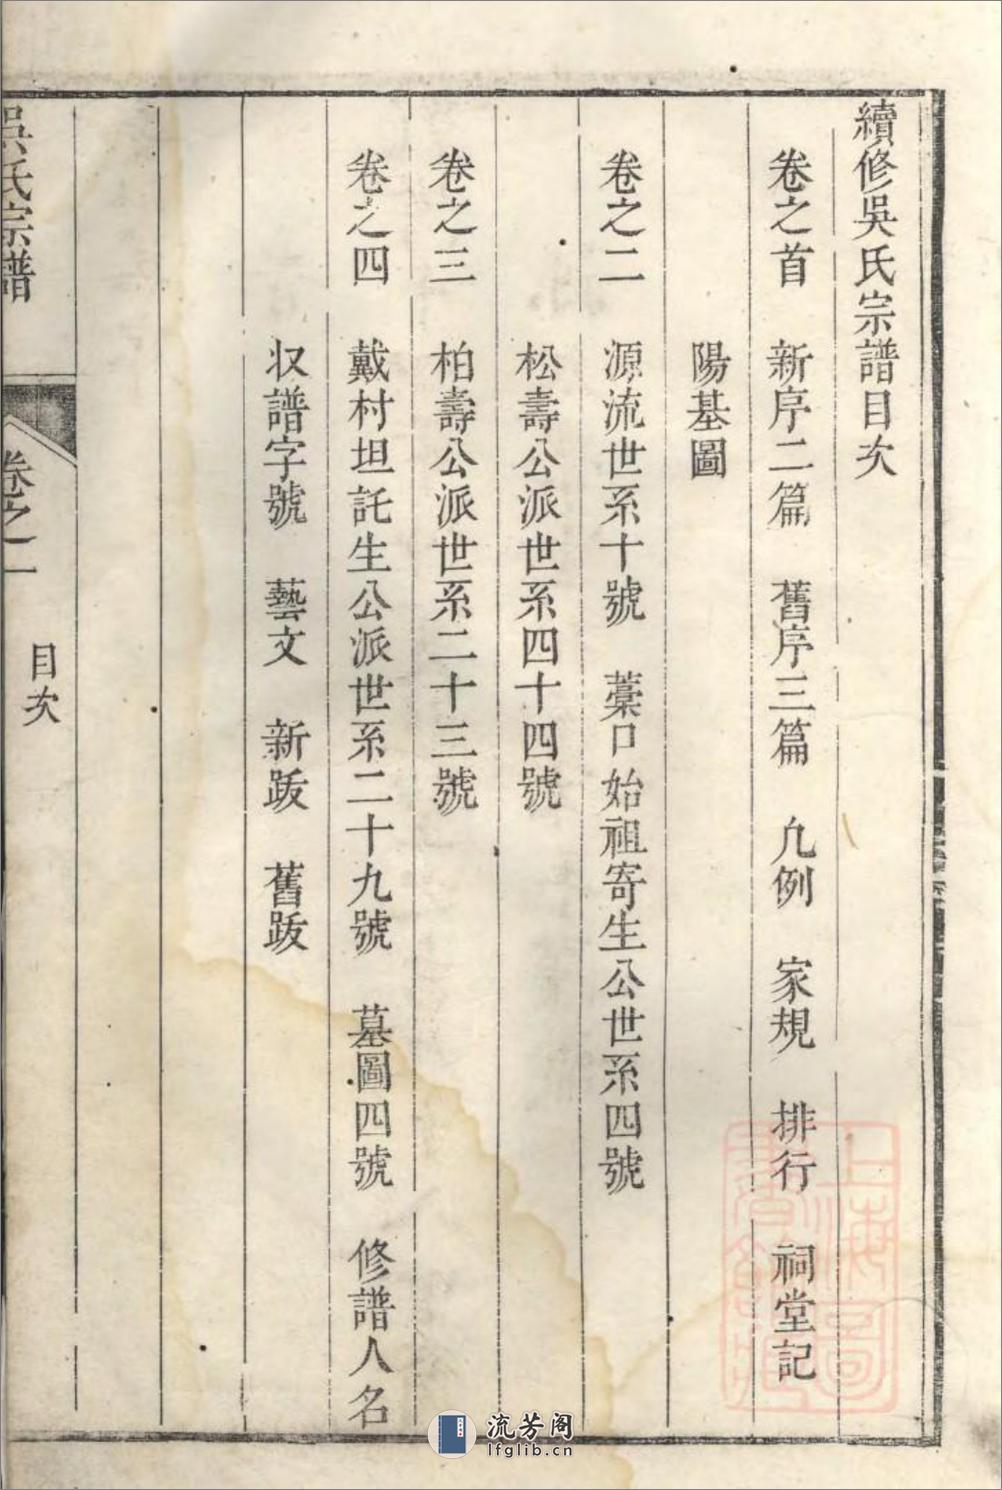 續修吳氏宗譜目次
卷之首　新序二篇　舊序三篇　凢例　家規　排行　祠堂記
陽基圖
卷之二　源流世系十號　藁口始祖寄生公世系四號
松壽公派世系四十四號
卷之三　柏壽公派世系二十三號
卷之四　戴村坦託生公派世系二十九號　墓圖四號　修譜人名
収譜字號　藝文　新跋　舊跋
吳氏宗譜　卷之一　目次
上海圖
書館藏
流芳阁
lfglib.cn